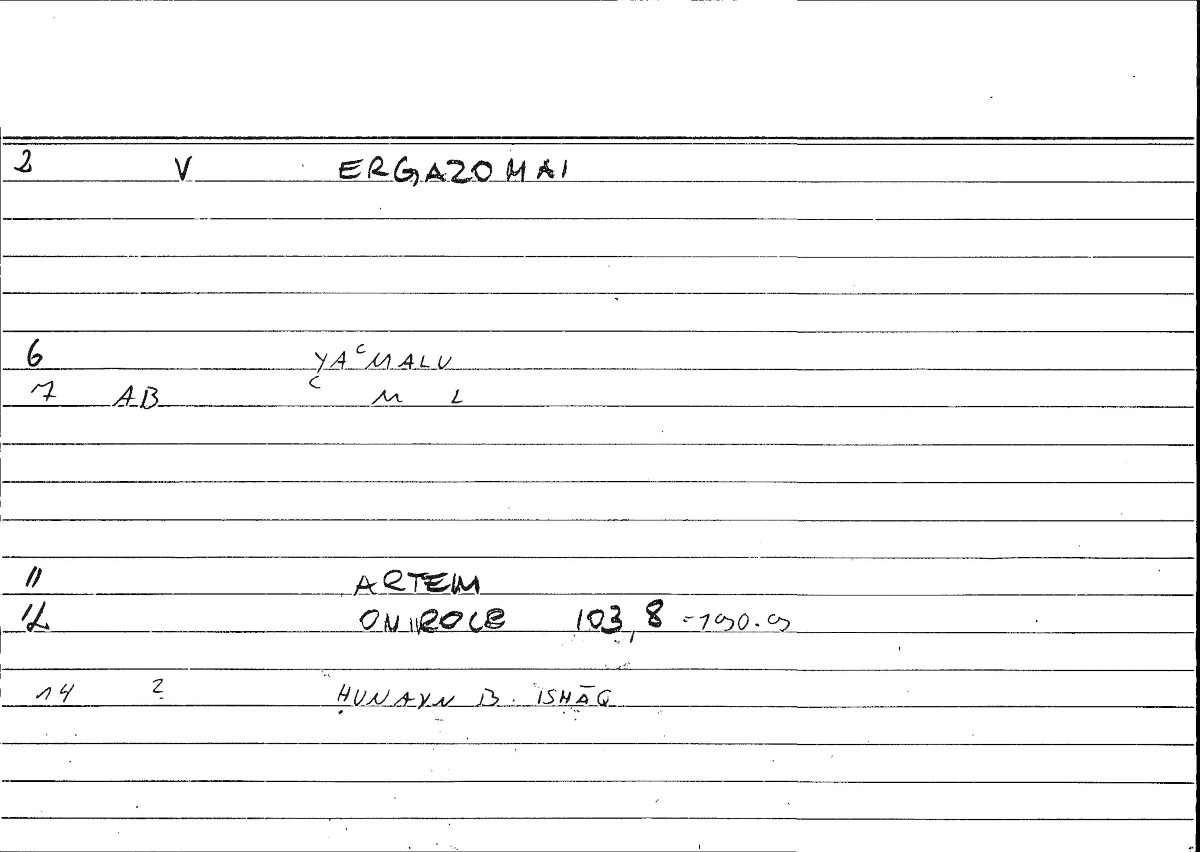 2 V ERGAZOMAI
6 YAʿMALU
7 AB ʿ M L
11 ARTEM
12 ONIROCR 103,8 = 190.9
14 ? ḤUNAYN B. ISḤĀQ